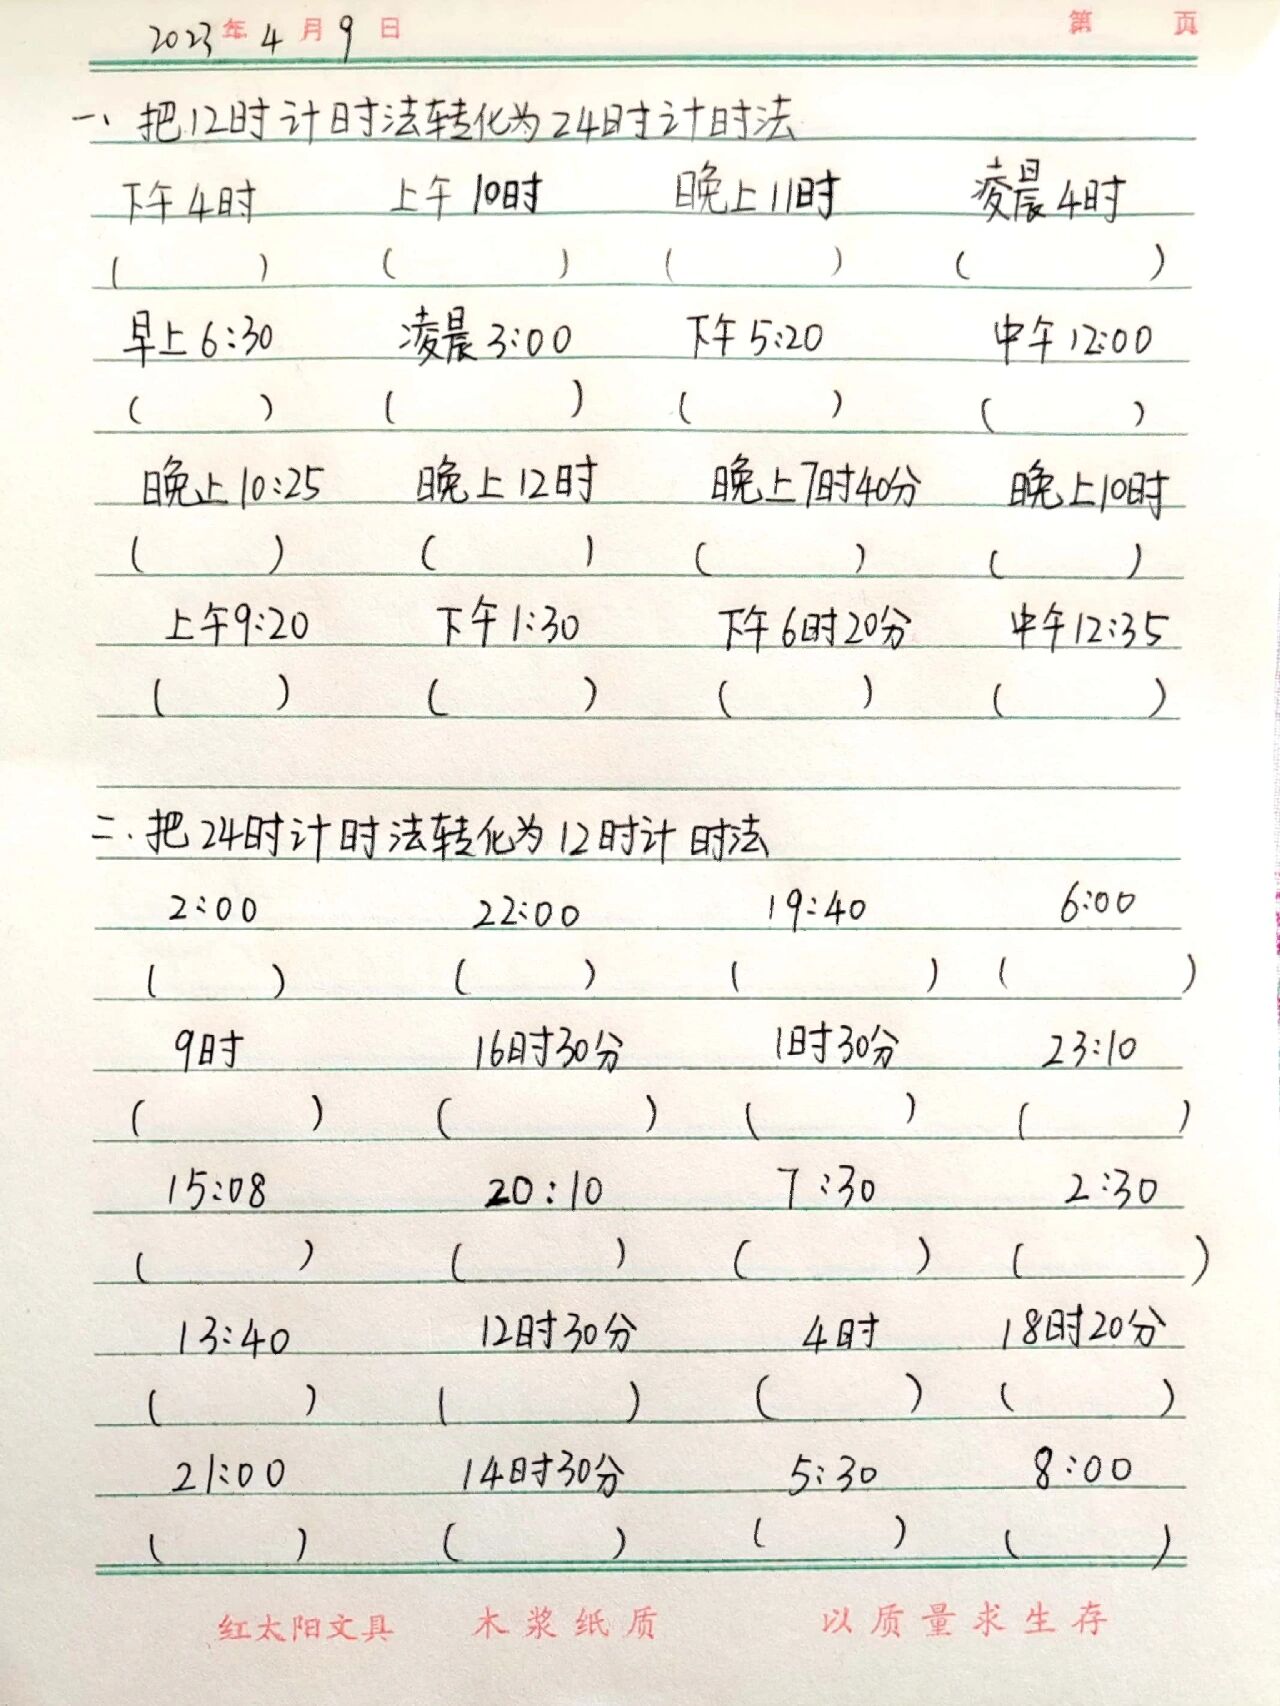 2023年4月9日 第 页
一、把12时计时法转化为24时计时法
下午4时 上午10时 晚上11时 凌晨4时
( ) ( ) ( ) ( )
早上6:30 凌晨3:00 下午5:20 中午12:00
( ) ( ) ( ) ( )
晚上10:25 晚上12时 晚上7时40分 晚上10时
( ) ( ) ( ) ( )
上午9:20 下午1:30 下午6时20分 中午12:35
( ) ( ) ( ) ( )
二.把24时计时法转化为12时计时法
2:00 22:00 19:40 6:00
( ) ( ) ( ) ( )
9时 16时30分 1时30分 23:10
( ) ( ) ( ) ( )
15:08 20:10 7:30 2:30
( ) ( ) ( ) ( )
13:40 12时30分 4时 18时20分
( ) ( ) ( ) ( )
21:00 14时30分 5:30 8:00
( ) ( ) ( ) ( )
红太阳文具 木浆纸质 以质量求生存